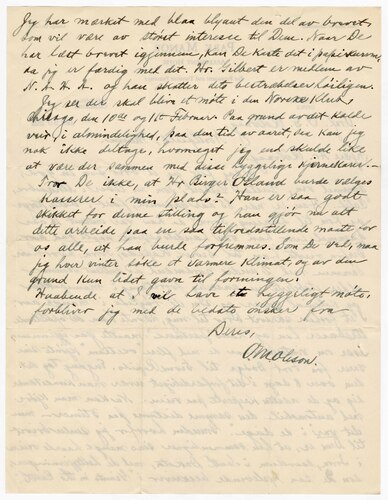 Jeg har mærket med blaa blyant den del av brevet,
som vil være av størst interesse til Dem. Naar De
har læst brevet igjennem, kan De kaste det i papirkurven,
da jeg er færdig med det. Hr. Gilbert er medlem av
N. A. H. A. og han skatter dets bestræbelser høiligen.
Jeg ser der skal blive et møte i den Norske Klub,
Chicago, den 10de og 11te Februar. Paa grund av det kolde
veir i almindelighed, paa den tid av aaret, vil kan jeg
nok ikke deltage, hvormeget jeg end skulde like
at være der sammen med disse hyggelige hjernekarer.—
Tror De ikke, at Hr Birger Osland burde vælges
kasserer i min plads? Han er saa godt
skikket for denne stilling og han gjør nu alt
dette arbeide paa en saa tilfredsstillende maate for
os alle, at han burde forfremmes. Som De vel, maa
jeg hver vinter søke et varmere Klimat, og av den
grund kun lidet gavn til foreningen.
Haabende at I vil have et hyggeligt møte,
forbliver jeg med de bedste ønsker fra
Deres,
O M Oleson.